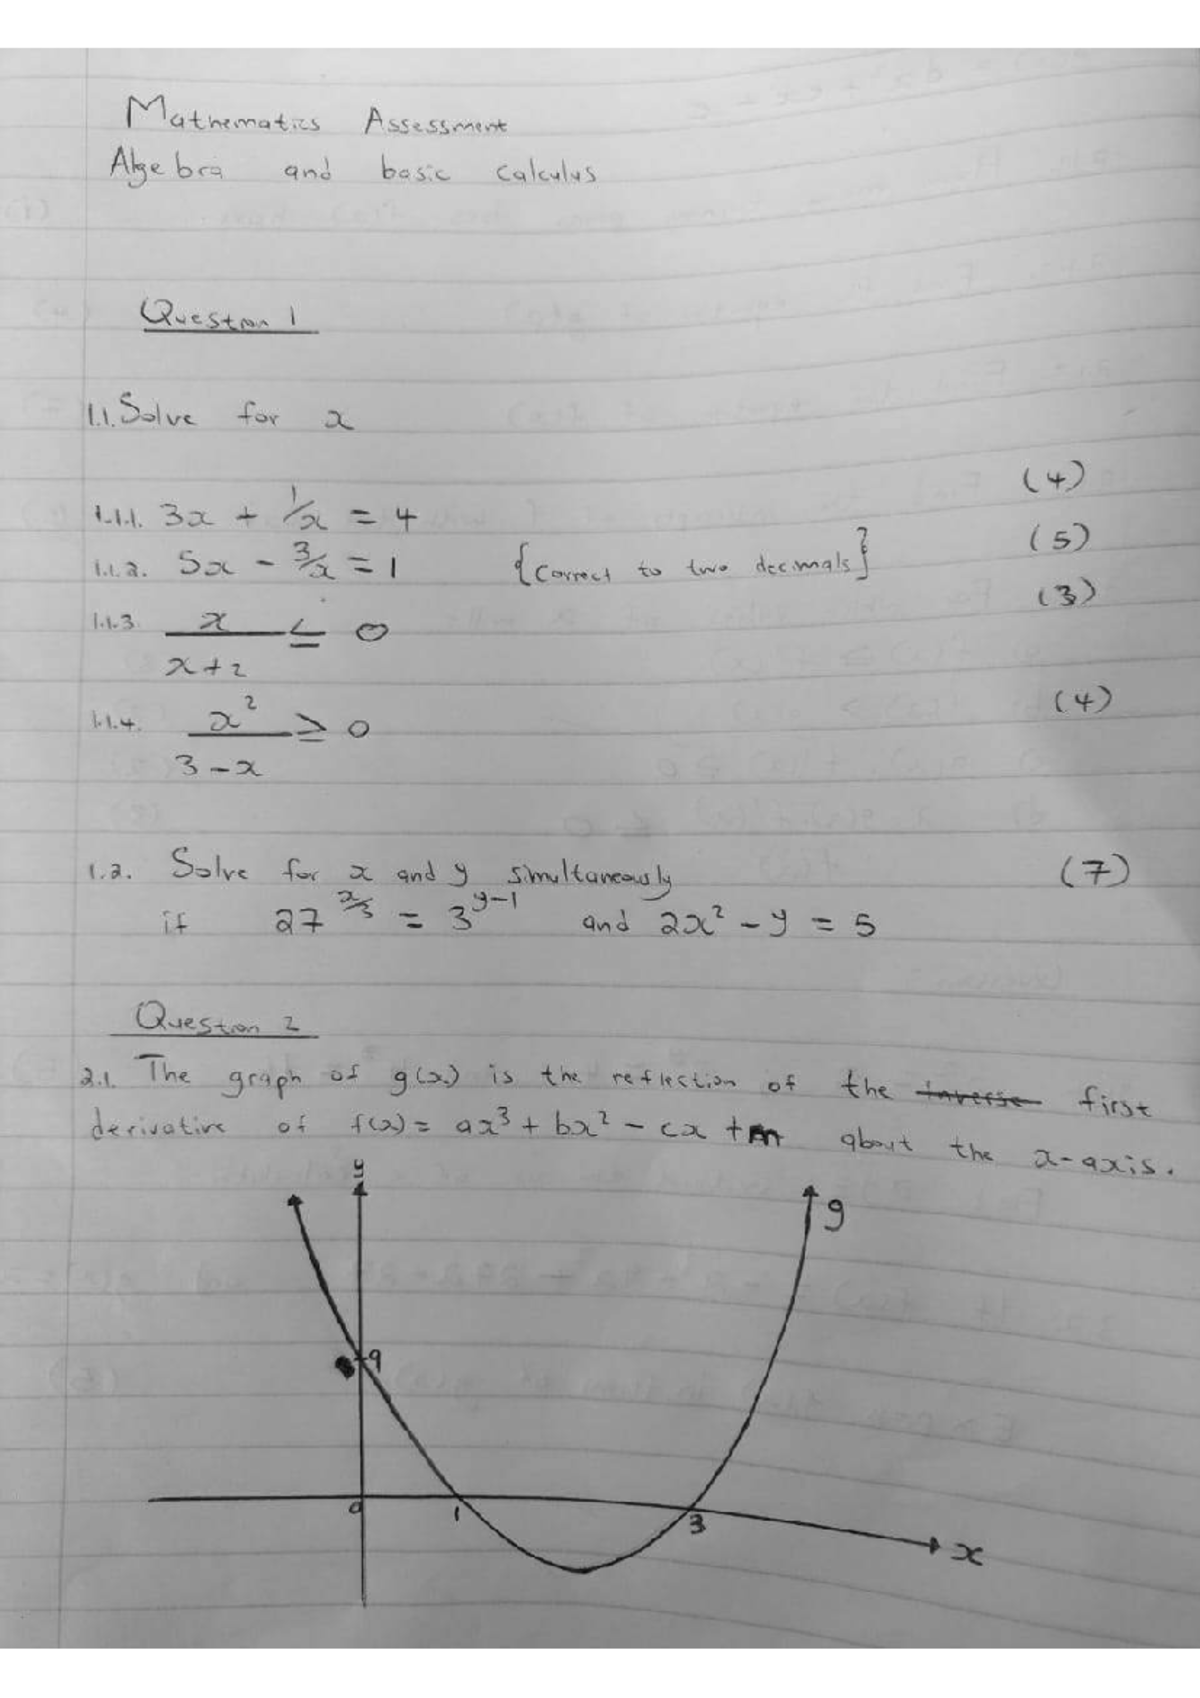 Mathematics Assessment
Algebra and basic calculus
Question 1
1.1. Solve for x
1.1.1. 3x + 1/x = 4 (4)
1.1.2. 5x - 3/x = 1 {correct to two decimals} (5)
1.1.3 x/(x+2) ≤ 0 (3)
1.1.4. x²/(3-x) ≥ 0 (4)
1.2. Solve for x and y simultaneously (7)
if 27^(x/3) = 3^(y-1) and 2x² - y = 5
Question 2
2.1. The graph of g(x) is the reflection of the inverse first
derivative of f(x) = ax³ + bx² - cx + m about the x-axis.
y
g
9
0 1 3 x